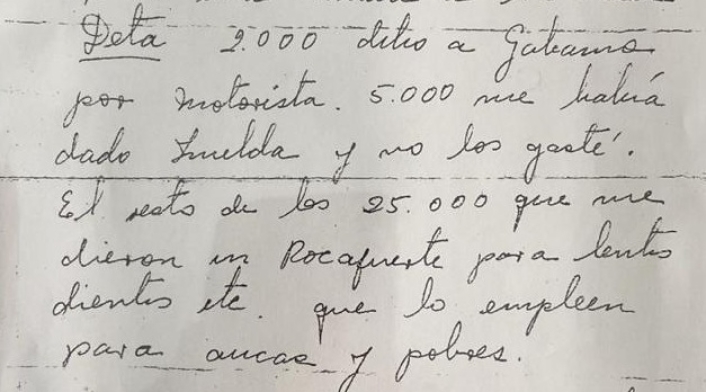 Deta 2.000 ditio a
por motorista. 5.000 me había
dado Imelda y no los gasté.
El resto de los 25.000 que me
dieron en Rocafuerte para lentes
dientes etc. que lo empleen
para aucas y pobres.